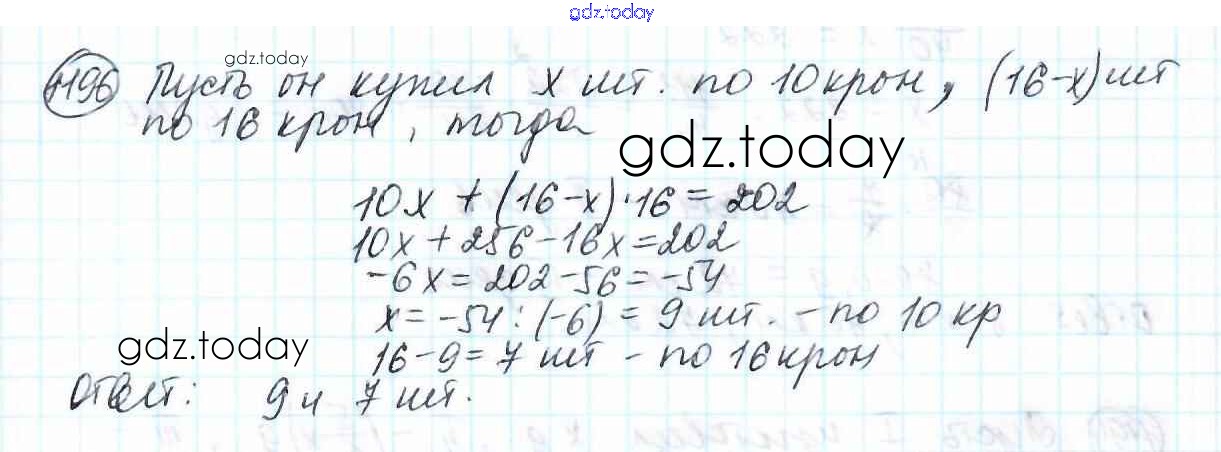 gdz.today
gdz.today
1196 Пусть он купил x шт. по 10 крон, (16-x) шт
по 16 крон, тогда
gdz.today
10x + (16-x)·16 = 202
10x + 256 - 16x = 202
-6x = 202 - 56 = -54
x = -54 : (-6) = 9 шт. - по 10 кр
gdz.today
16 - 9 = 7 шт - по 16 крон
Ответ: 9 и 7 шт.